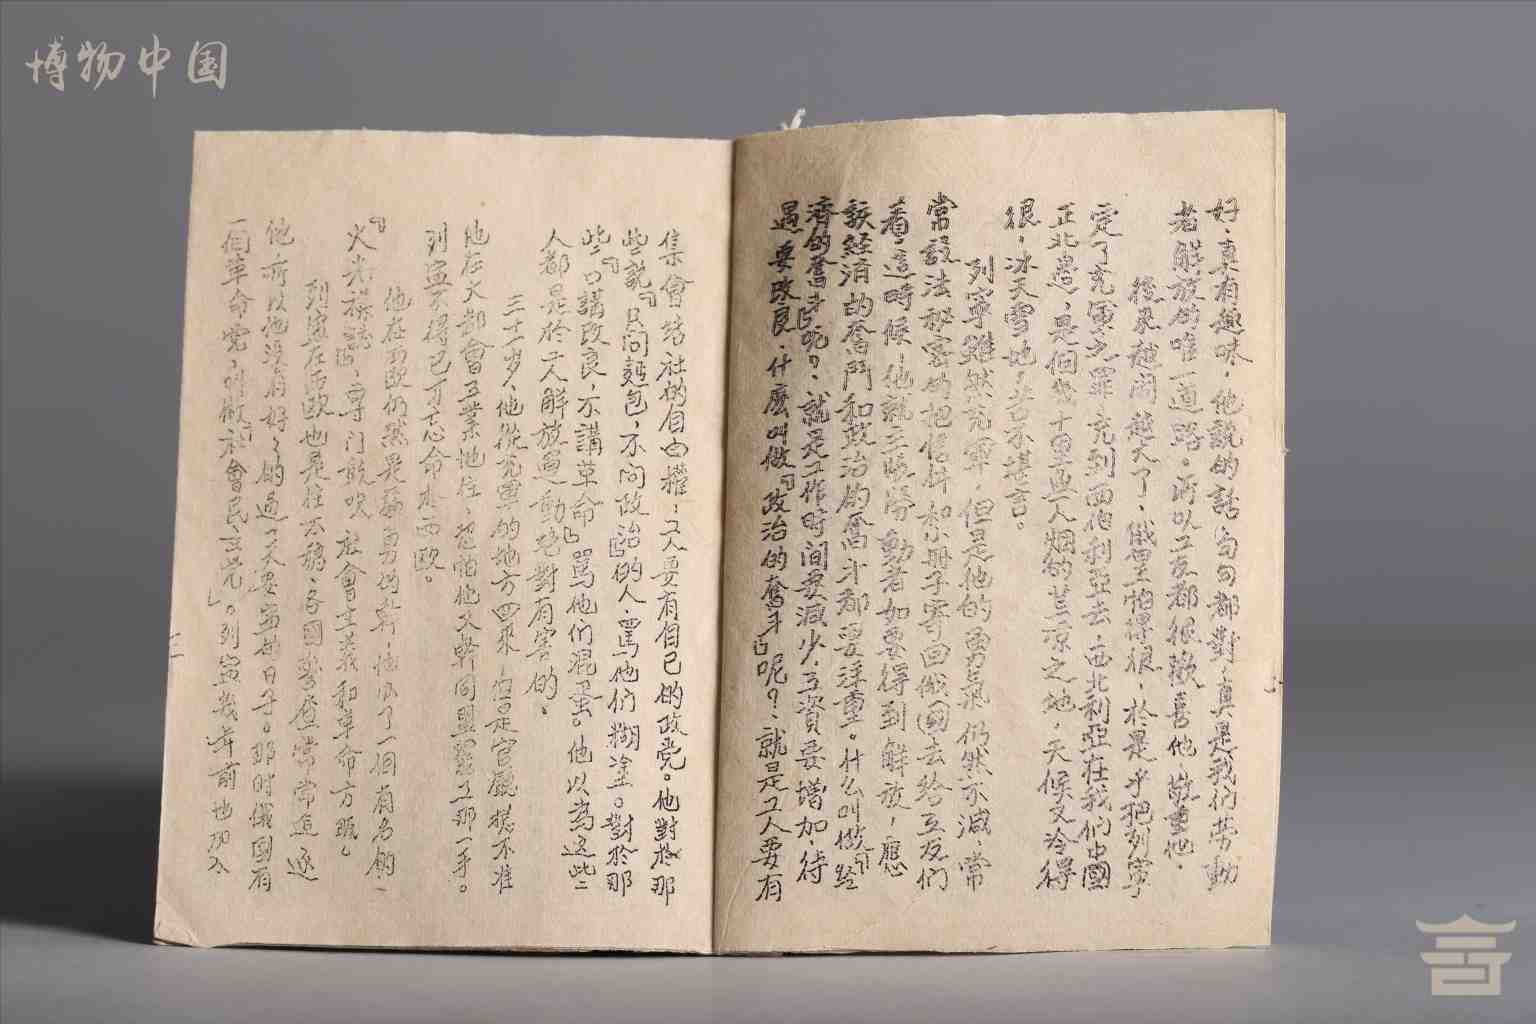 博物中国
好，真有趣味，他說的話句句都對，真是我们劳動
者解放的唯一道路。所以工友都很歡喜他，敬重他。
後來越鬧越大了，俄皇怕得很，於是乎把列寧
定了充軍之罪，充到西伯利亞去，西北利亞在我们中國
正北邊，是個幾十里無人烟的荒凉之地，天候又冷得
很，冰天雪地，苦不堪言。
列寧雖然充軍，但是他的勇氣仍然不減，常
常設法秘密的把信件和小冊子寄回俄國去给工友们
看，這時候，他就主張勞動者如要得到解放，應
該經済的奮鬥和政治的奮斗都要注重。什么叫做『經
濟的奮斗』呢？，就是工作時间要減少，工資要增加，待
遇要改良，什麽叫做『政治的奮斗』呢？，就是工人要有
集會结社的自由權，工人要有自已的政党。他對於那
些說『只问麵包，不问政治』的人，罵他们糊塗。對於那
些『口講改良，不講革命』罵他们混蛋。他以為这些
人都是於工人解放運動绝對有害的。
三十一岁，他從充軍的地方回來，但是官廳總不准
他在大都會工業地住，恐怕他又幹同盟罷工那一手。
列寧不得已可亡命于西欧。
他在西欧仍然是猛勇的幹，他办了一個有名的
『火光襍誌』，專门鼓吹社會主義和革命方畧。
列寧在西欧也是住不穏，各國警察常常追逐
他，所以他没有好好的過一天安寧的日子。那时俄國有
一個革命党，叫做『社會民主党』。列寧幾年前也加入